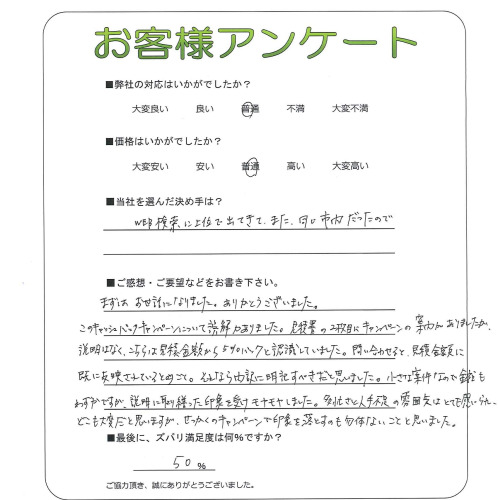 お客様アンケート
■弊社の対応はいかがでしたか？
大変良い 良い 普通 不満 大変不満
■価格はいかがでしたか？
大変安い 安い 普通 高い 大変高い
■当社を選んだ決め手は？
WEB検索に上位で出てきて、また、同じ市内だったので
■ご感想・ご要望などをお書き下さい。
まずは お世話になりました。ありがとうございました。
このキャッシュバックキャンペーンについて誤解がありました。見積書の2枚目にキャンペーンの案内がありましたが、
説明はなく、こちらは見積金額から5%バックと認識していました。問い合わせると、見積金額に
既に反映されているとのこと。そんなら内訳に明記すべきだと思いました。小さな案件なので金額も
わずかですが、説明に取り繕った印象を受けモヤモヤしました。多忙さと人手不足の雰囲気はとても思いやられ、
どこも大変だと思いますが、せっかくのキャンペーンで印象を落とすのも勿体ないことと思いました。
■最後に、ズバリ満足度は何%ですか？
50 %
ご協力頂き、誠にありがとうございました。